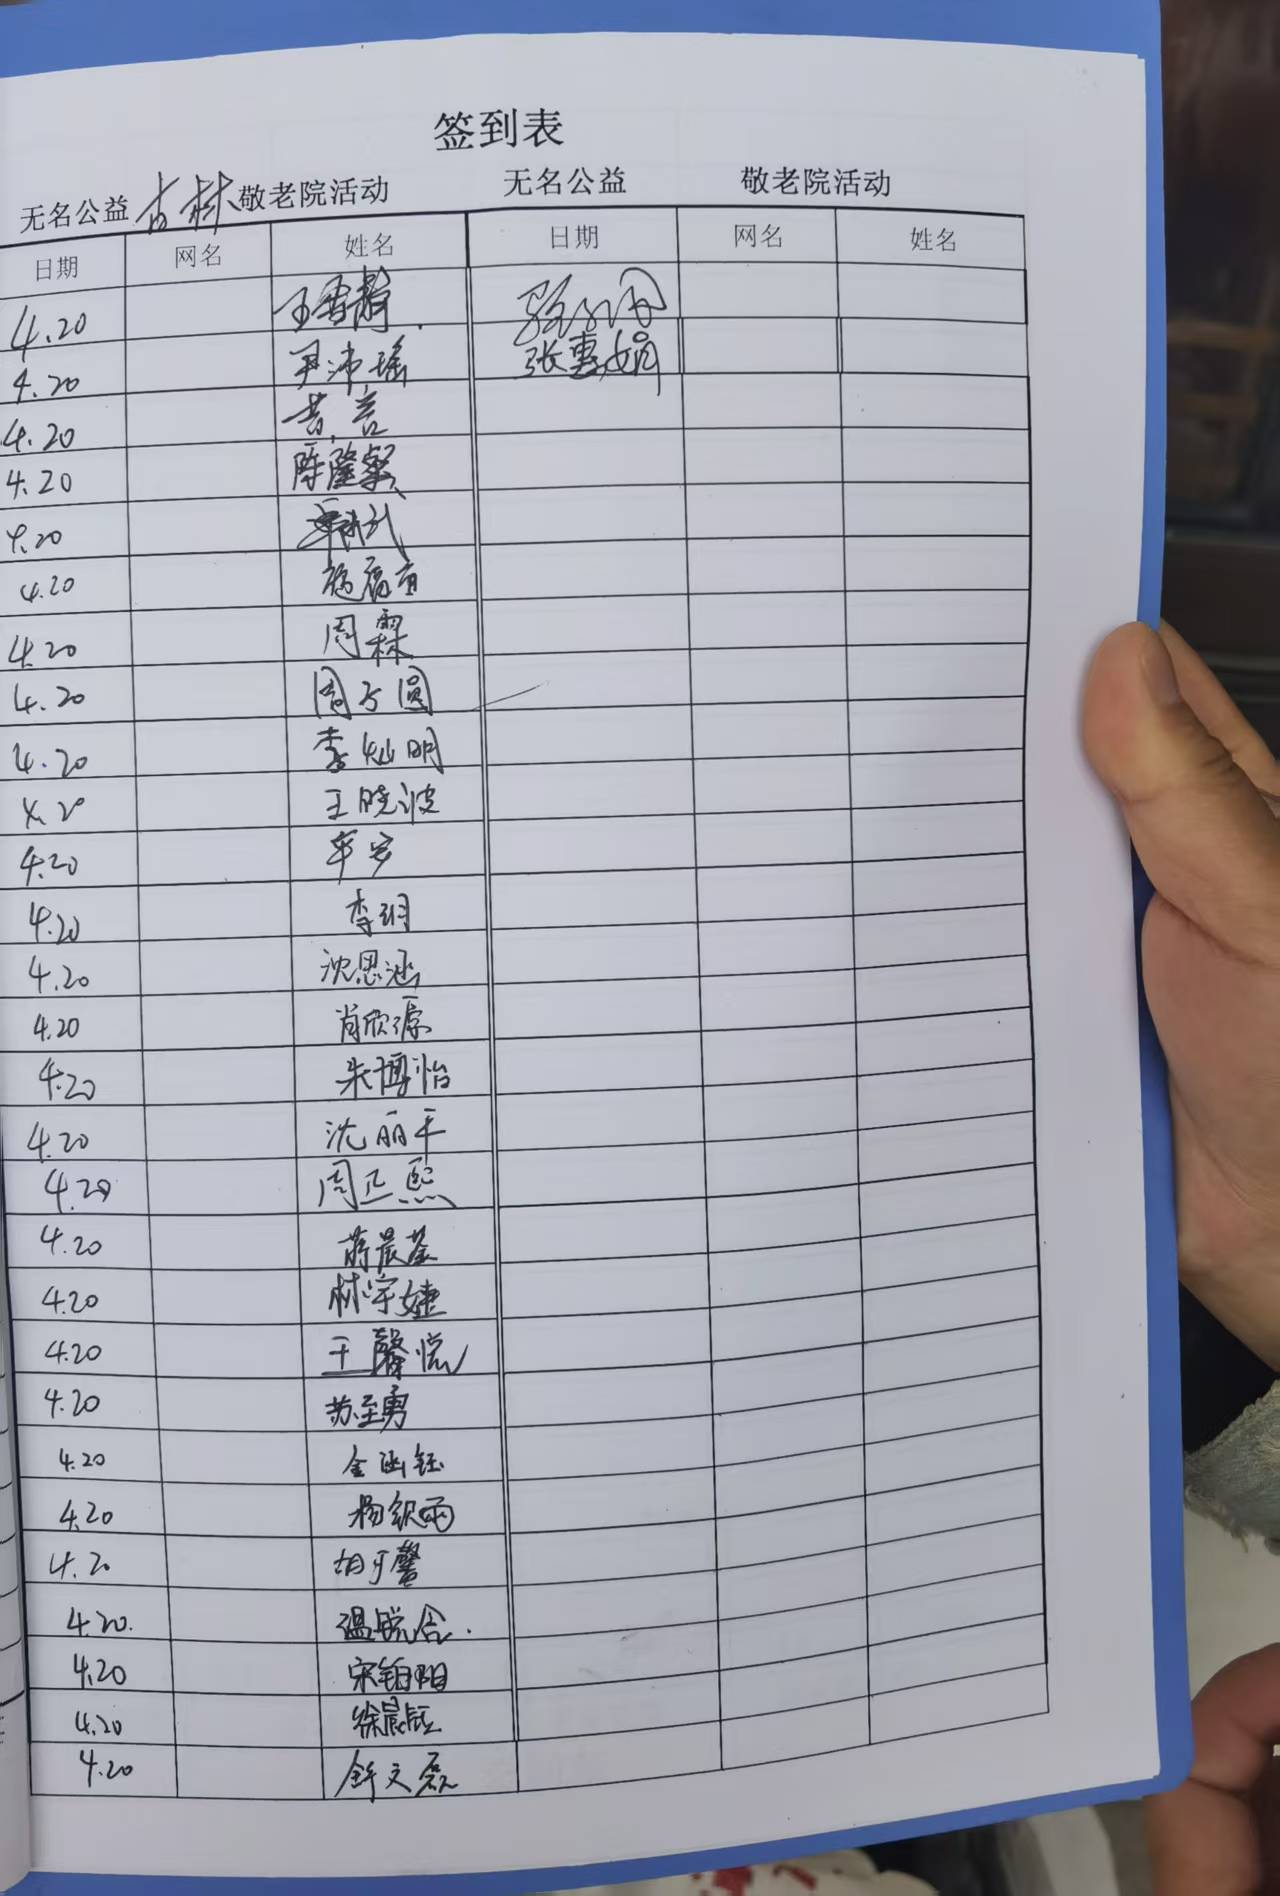 签到表
无名公益 古林 敬老院活动 无名公益 敬老院活动
日期 网名 姓名 日期 网名 姓名
4.20
4.20 尹沛瑶 张惠娟
4.20
4.20 陈隆粲
4.20
4.20
4.20 周霖
4.20 周方圆
4.20 李灿明
4.20 王晓波
4.20
4.20 李玥
4.20 沈思涵
4.20 肖欣源
4.20 朱博怡
4.20 沈丽平
4.20 周正熙
4.20 蒋晨荃
4.20 林宇婕
4.20 王馨悦
4.20 苏至勇
4.20 金函钰
4.20 杨织雨
4.20
4.20.
4.20 宋铂阳
4.20 徐晨钰
4.20 舒文磊